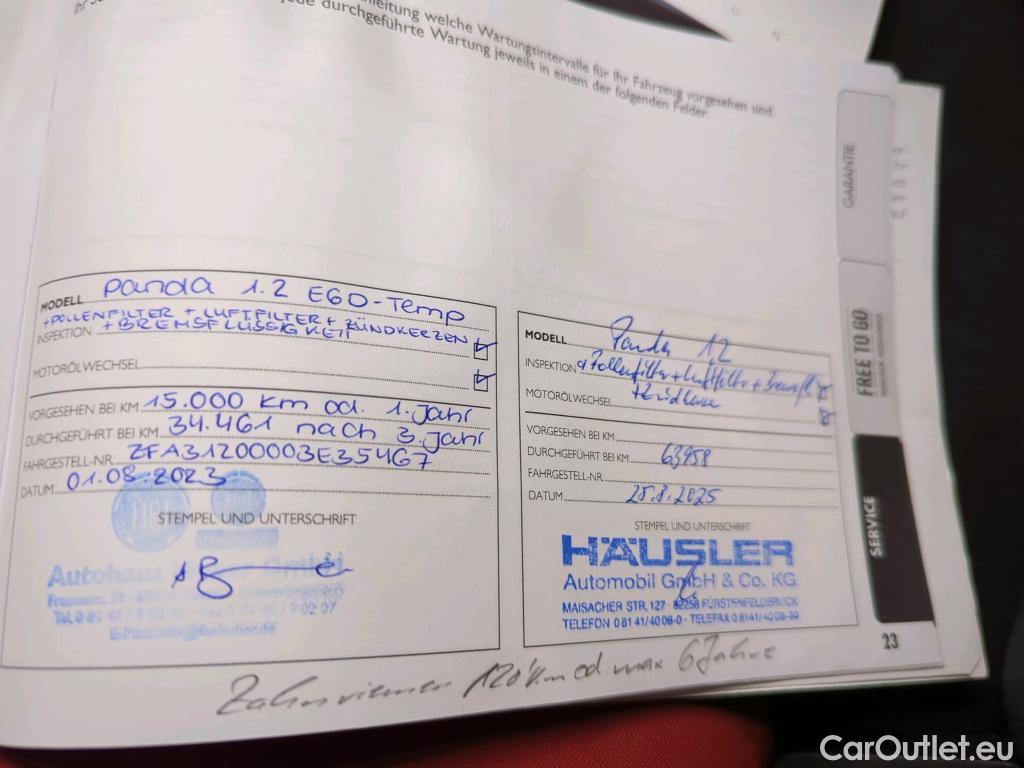 leitung welche Wartungsintervalle für Ihr Fahrzeug vorgesehen sind.
jede durchgeführte Wartung jeweils in einem der folgenden Felder.
GARANTIE
FREE TO GO
SERVICE
MODELL Panda 1.2 EGO-Temp
+POLLENFILTER + LUFTFILTER + ZÜNDKERZEN
INSPEKTION +BREMSFLÜSSIGKEIT
MOTORÖLWECHSEL
VORGESEHEN BEI KM 15.000 km od. 1. Jahr
DURCHGEFÜHRT BEI KM 34.461 nach 3. Jahr
FAHRGESTELL-NR. ZFA31200003E35467
DATUM 01.08.2023
STEMPEL UND UNTERSCHRIFT
Autohaus GmbH
MODELL Panda 1.2
INSPEKTION + Pollenfilter + Luftfilter + Bremsfl
MOTORÖLWECHSEL
VORGESEHEN BEI KM
DURCHGEFÜHRT BEI KM 63958
FAHRGESTELL-NR.
DATUM 25.8.2025
STEMPEL UND UNTERSCHRIFT
HÄUSLER
Automobil GmbH & Co. KG
MAISACHER STR. 127 · 82256 FÜRSTENFELDBRUCK
TELEFON 0 81 41/40 06-0 · TELEFAX 0 81 41/40 06-30
23
Zahnriemen 120'km od. max 6 Jahre
CarOutlet.eu